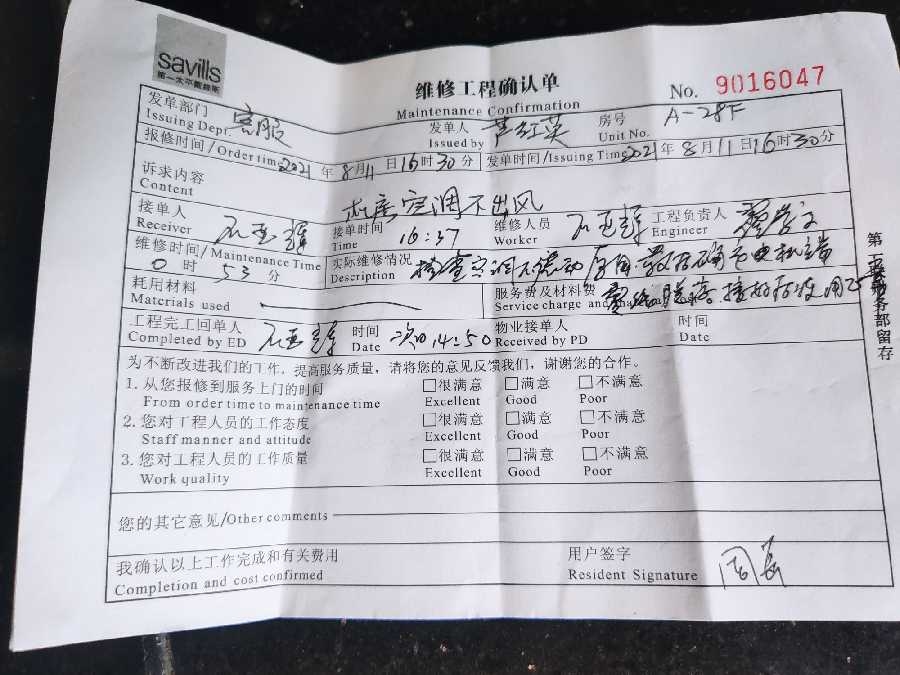 savills
第一太平戴维斯
维修工程确认单
Maintenance Confirmation
No. 9016047
发单部门 客服 发单人 房号 A-28F
Issuing Dept. Issued by Unit No.
报修时间/Order time 2021年8月11日16时30分 发单时间/Issuing Time 2021年8月11日16时30分
诉求内容
Content
机房空调不出风
接单人 接单时间 16:37 维修人员 工程负责人
Receiver Time Worker Engineer
维修时间/Maintenance Time 实际维修情况 检查空调不启动
0时53分 Description
耗用材料 服务费及材料费
Materials used Service charge and
工程完工回单人 时间 次日14:50 物业接单人 时间
Completed by ED Date Received by PD Date
为不断改进我们的工作，提高服务质量，请将您的意见反馈我们，谢谢您的合作。
1. 从您报修到服务上门的时间 □很满意 □满意 □不满意
From order time to maintenance time Excellent Good Poor
2. 您对工程人员的工作态度 □很满意 □满意 □不满意
Staff manner and attitude Excellent Good Poor
3. 您对工程人员的工作质量 □很满意 □满意 □不满意
Work quality Excellent Good Poor
您的其它意见/Other comments
我确认以上工作完成和有关费用 用户签字
Completion and cost confirmed Resident Signature
第 联 务部留存